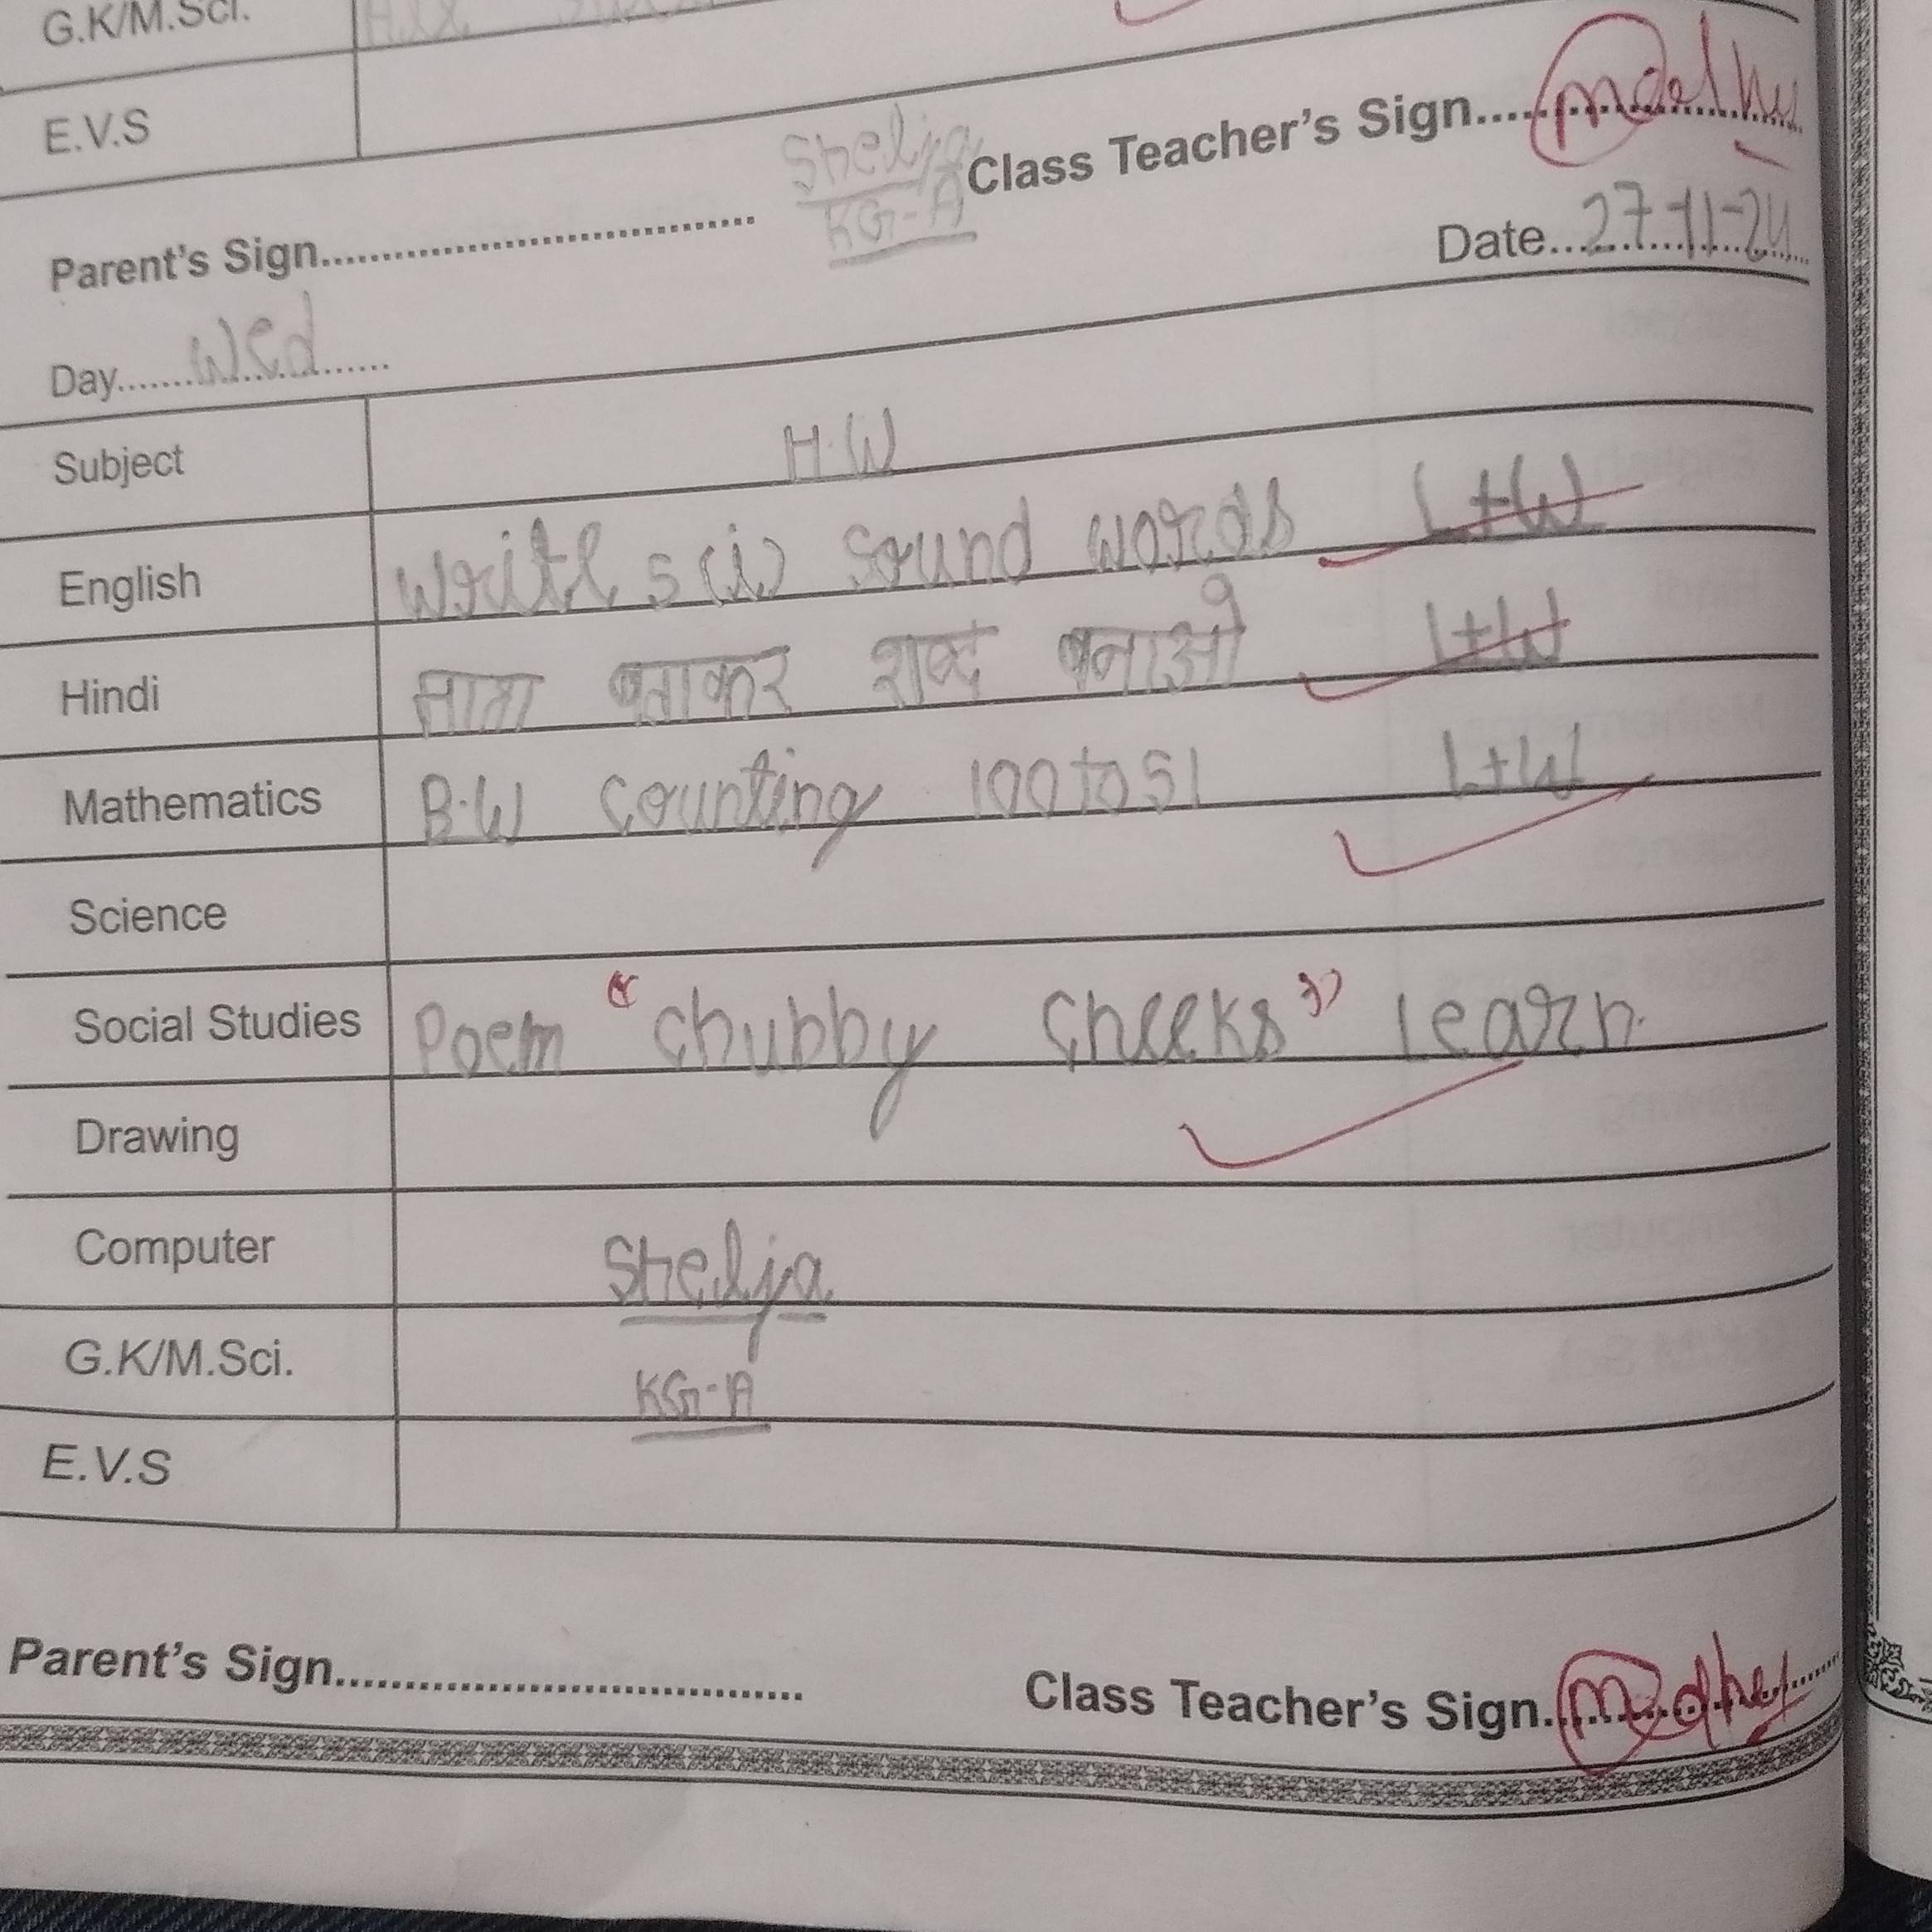 G.K/M.Sci.
E.V.S
Shelja
KG-A
Class Teacher's Sign..........
Parent's Sign..........
Date..........27-11-24
Day..........Wed
Subject H.W
English Write 5 (i) sound words L+W
Hindi मात्रा बताकर शब्द बनाओ L+W
Mathematics B.W counting 100 to 51 L+W
Science
Social Studies Poem "chubby cheeks" learn.
Drawing
Computer
Shelja
G.K/M.Sci.
KG-A
E.V.S
Parent's Sign..........
Class Teacher's Sign..........